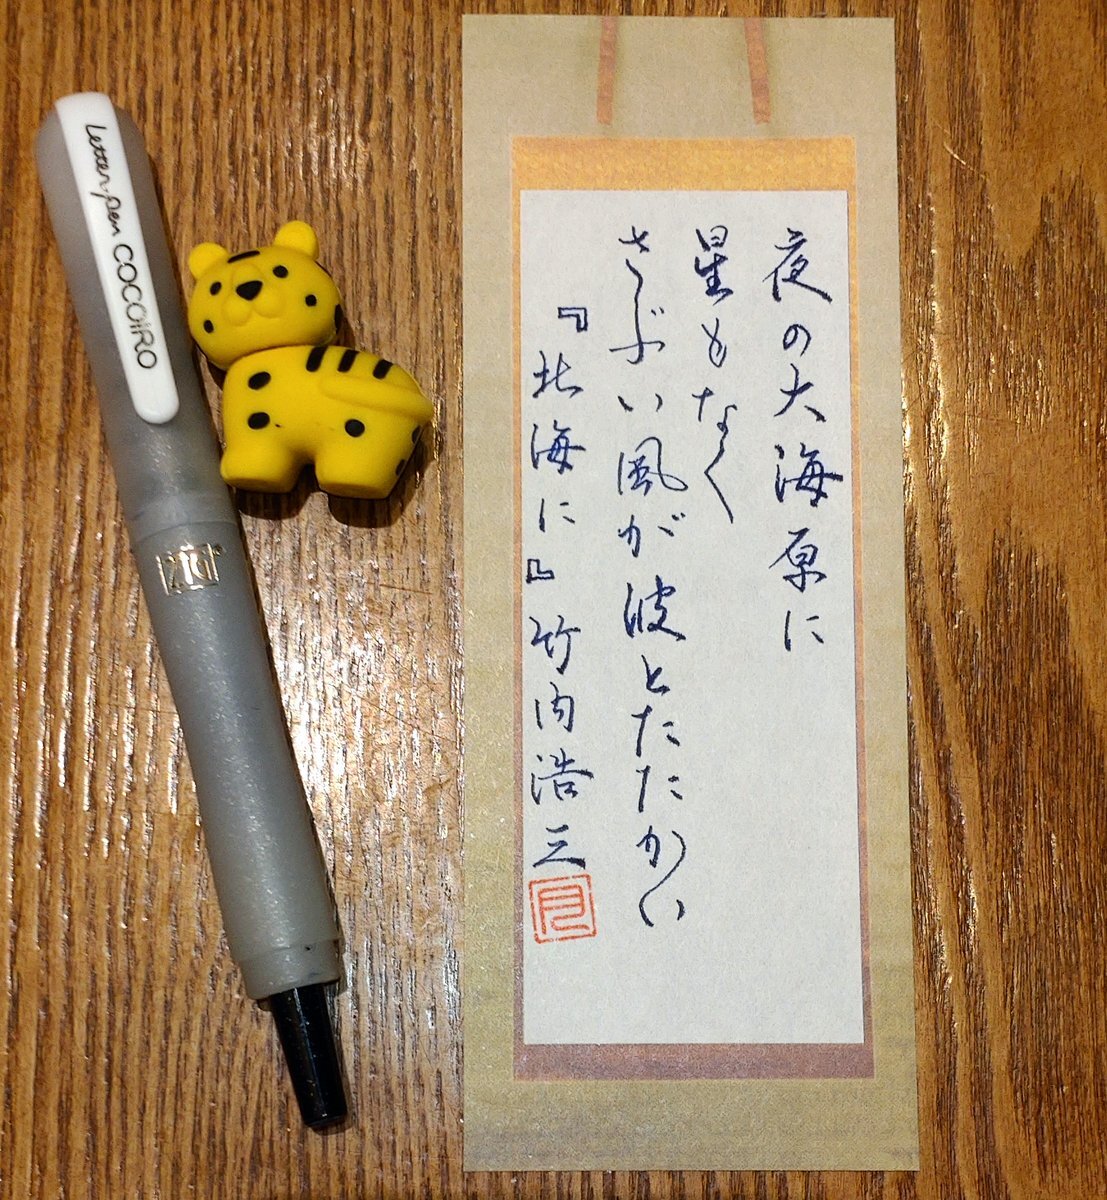 Letter pen COCOiRO
ZIG
夜の大海原に
星もなく
さぶい風が波とたたかい
『北海に』竹内浩三